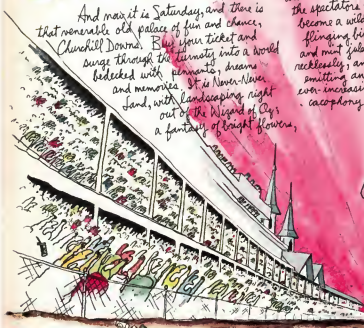 And now it is Saturday, and there is
that venerable old palace of fun and chance,
Churchill Downs. Buy your ticket and
surge through the turnstile into a world
bedecked with pennants, dreams
and memories. It is Never-Never
Land, with landscaping right
out of the Wizard of Oz,
a fantasy of bright flowers,
the spectators
become a
flinging
and mint
recklessly,
emitting an
ever-increasi
cacophony